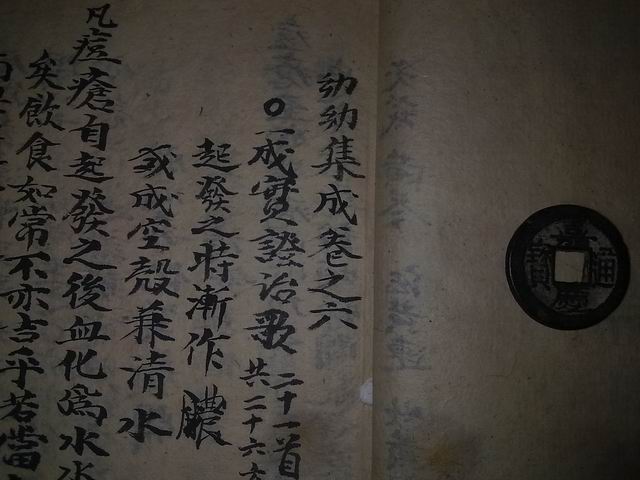 嘉慶通寶
幼幼集成卷之六
○一成實證治歌 二十一首
共二十六
起發之時漸作膿
或成空殼兼清水
凡痘瘡自起發之後血化爲水水
矣飲食如常不亦吉乎若當